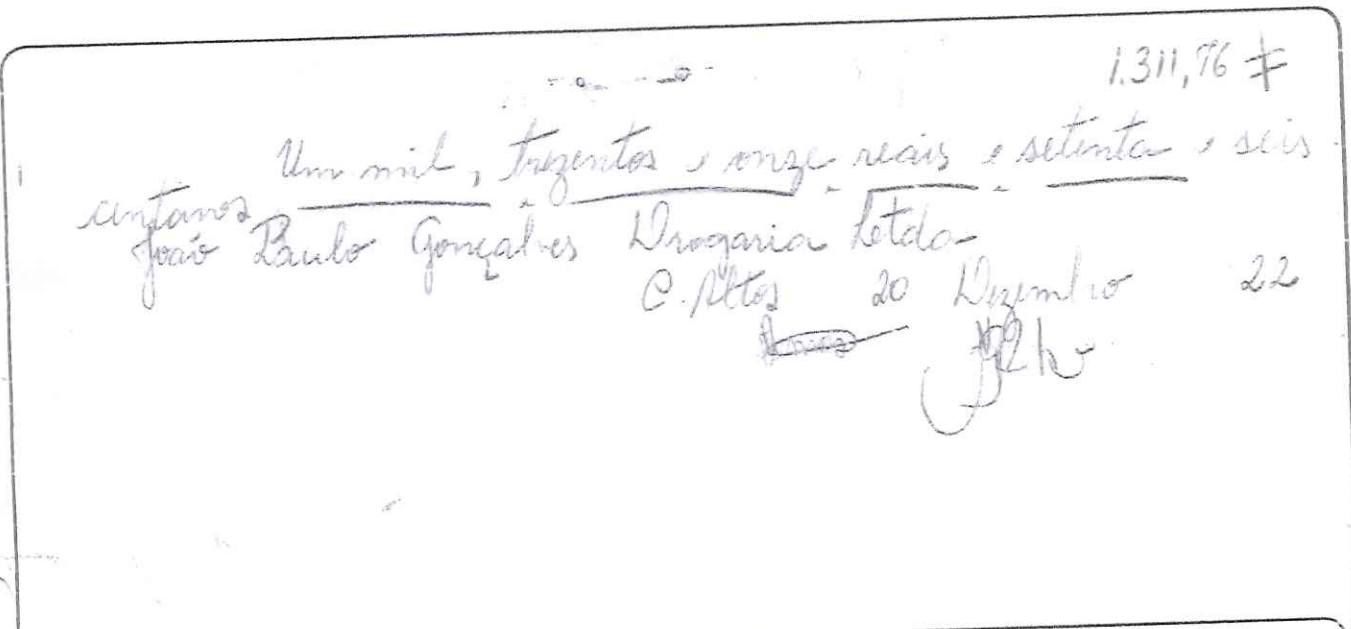 1.311,76
Um mil, trezentos e onze reais e setenta e seis
centavos
João Paulo Gonçalves Drogaria Ltda
C. Altos 20 Dezembro 22